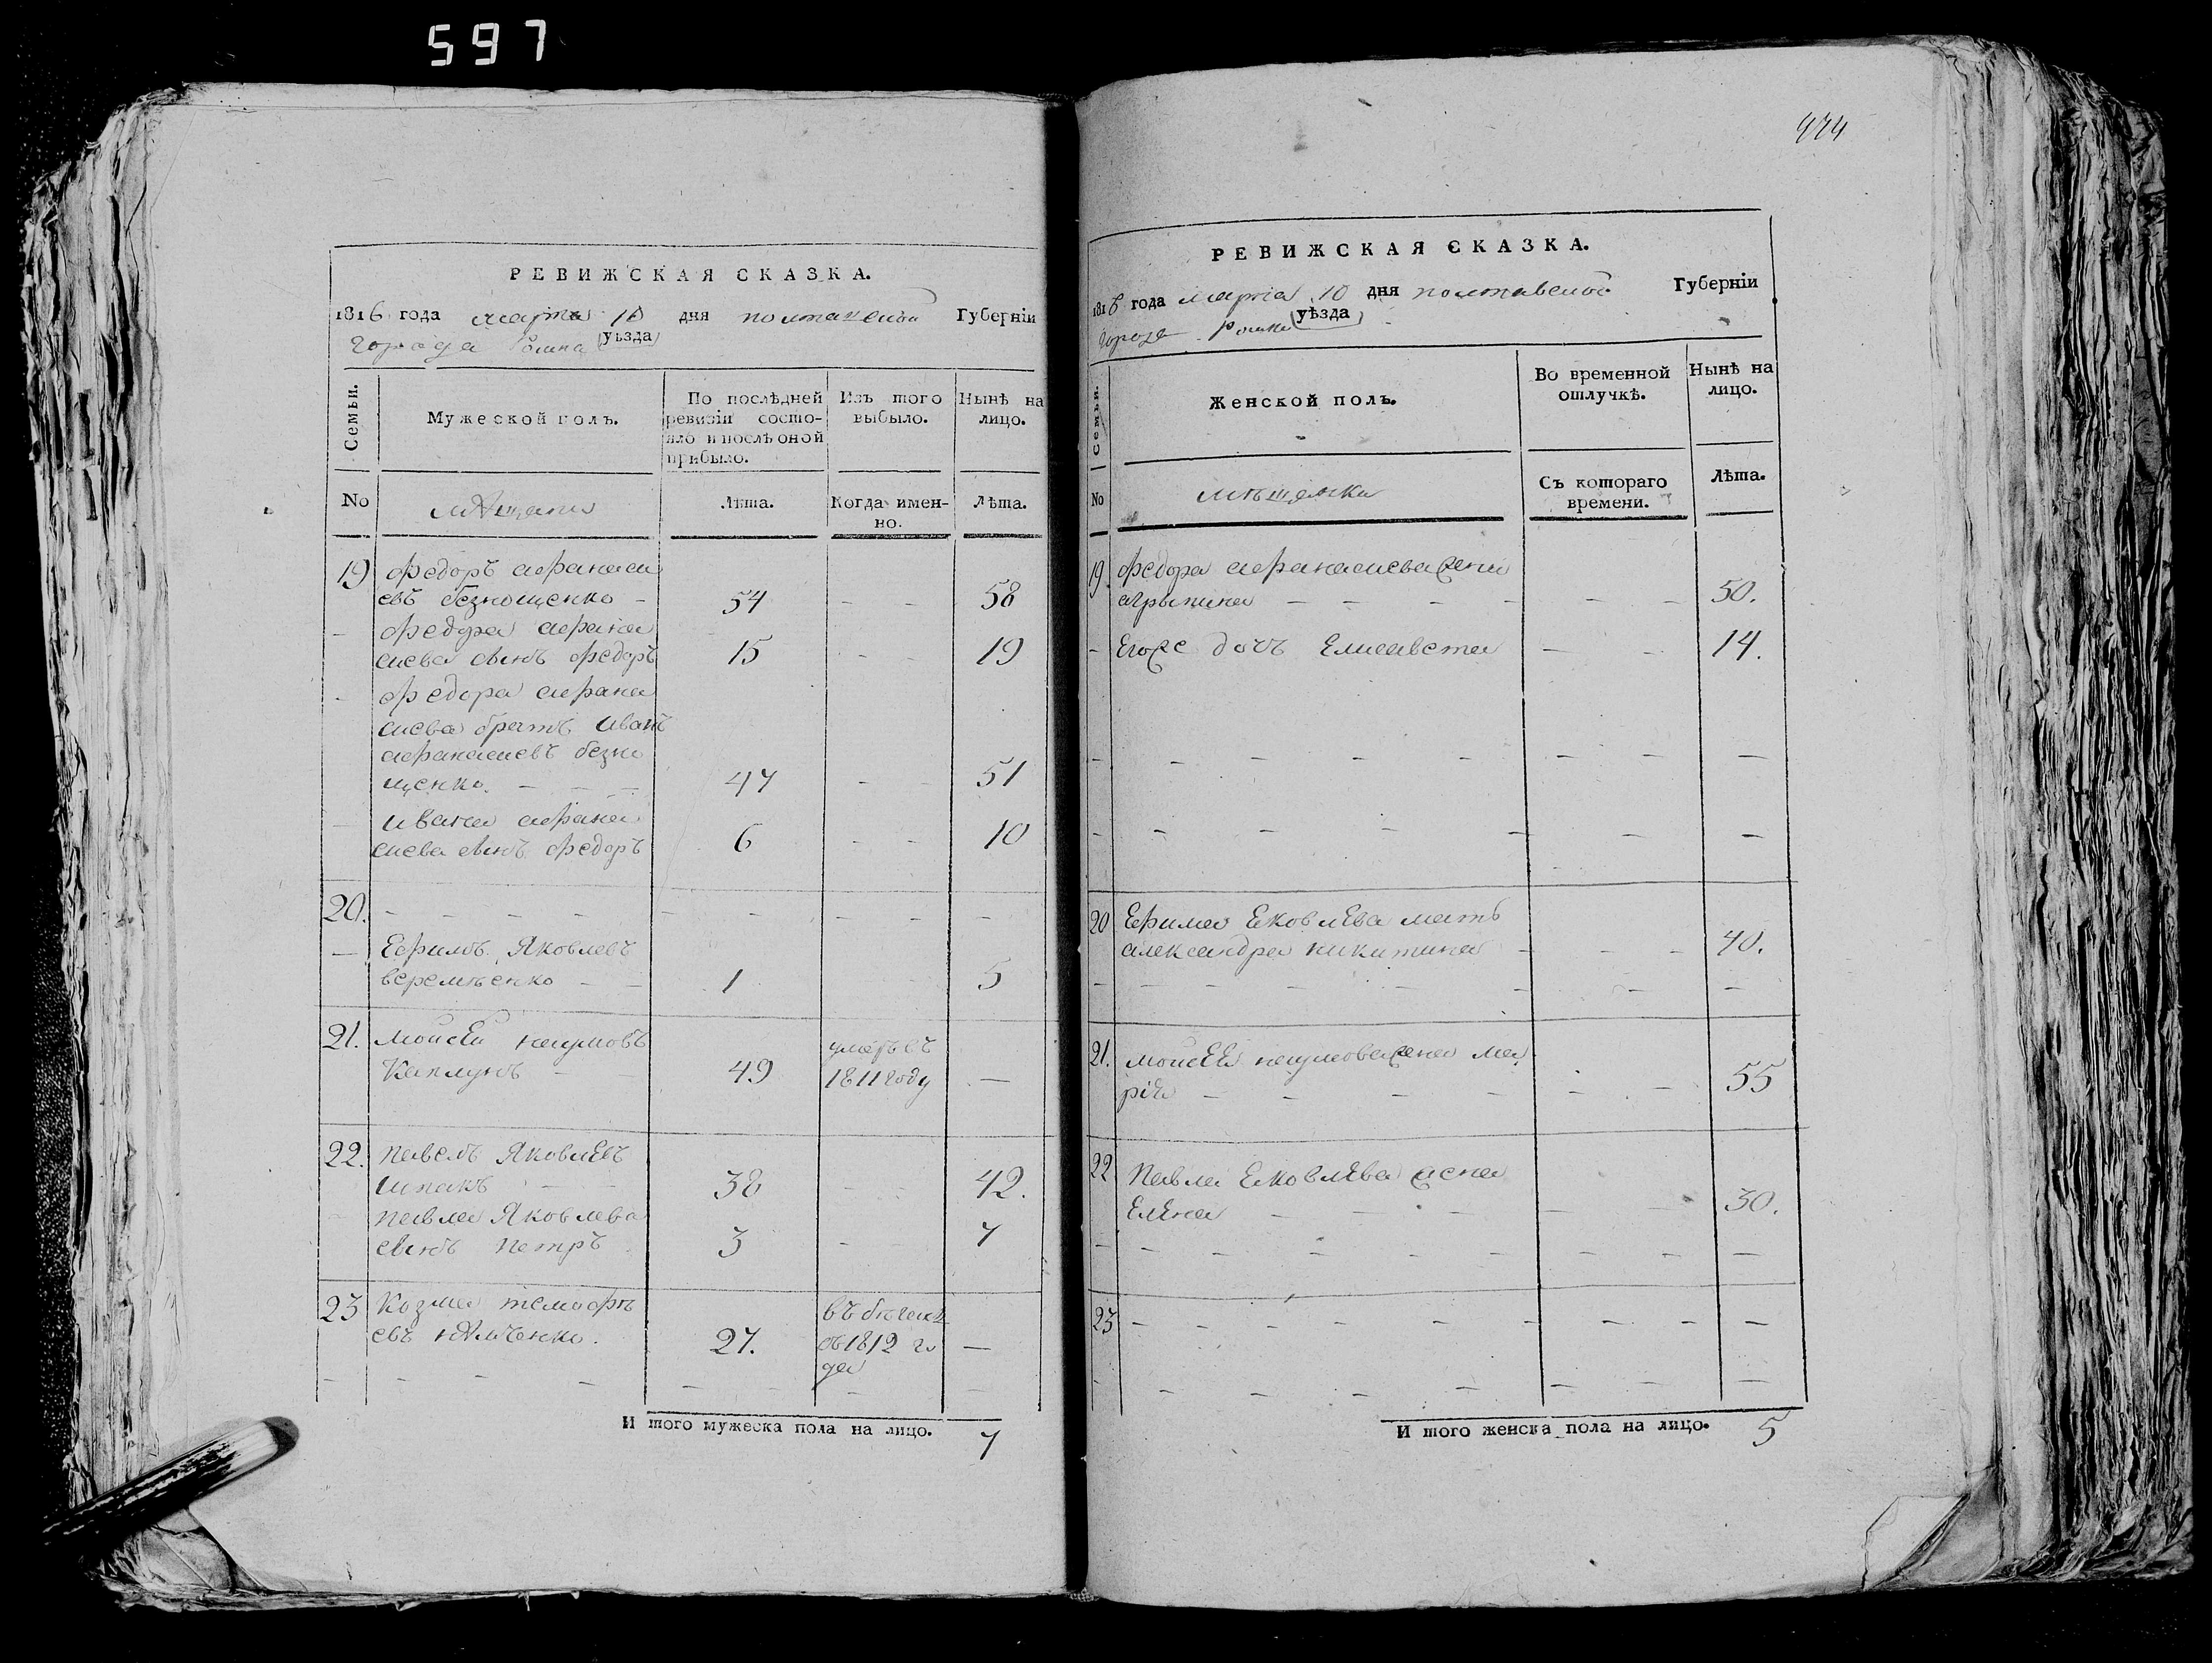 597
РЕВИЖСКАЯ СКАЗКА.
1816 года марта 10 дня полтавской Губерніи
города Ромна уѣзда
Семьи.
Мужеской полъ.
По послѣдней ревизіи состояло и послѣ оной прибыло.
Изъ того выбыло.
Нынѣ на лицо.
No
мѣщане
Лѣта.
Когда именно.
Лѣта.
19 федоръ афанаси
евъ безнощенко - 54 - - 58
- федора афана
сиева синъ федоръ 15 - - 19
- федора афана
сиева братъ иванъ
афанасиевъ безно
щенко. - - - 47 - - 51
- ивана афана
сиева синъ федоръ 6 - - 10
20. - - - - - - - - -
- Ефимъ Яковлевъ
веремѣенко - - 1 5
21. моисей наумовъ умеръ въ
Каплунъ - - 49 1811 году -
22. павелъ Яковлевъ
шпакъ - - 38 - - 42.
павла Яковлева
синъ петръ 3 - - 7
23 Козма тимофѣ въ бѣгахъ
евъ 27. съ 1812 го -
да
- - - - - - -
И того мужеска пола на лицо. 7
474
РЕВИЖСКАЯ СКАЗКА.
1816 года марта 10 дня полтавской Губерніи
города Ромна уѣзда
Семьи.
Женской полъ.
Во временной отлучкѣ.
Нынѣ на лицо.
No
мѣщанки
Съ котораго времени.
Лѣта.
19. федора афанасиева жена
агрыпина - - - - - - 50.
- Егоже дочъ Елисавета - - 14.
- - - - - - - -
- - - - - - -
20 Ефима Яковлева мать
александра никитина - - - 40.
- - - - - - - -
21. моисея наумова жена ма
рія - - - - - - 55
22 Павла Яковлева жена
Елена - - - - - 30.
- - - - - - - - -
23 - - - - - - - - -
- - - - - - - -
И того женска пола на лицо. 5